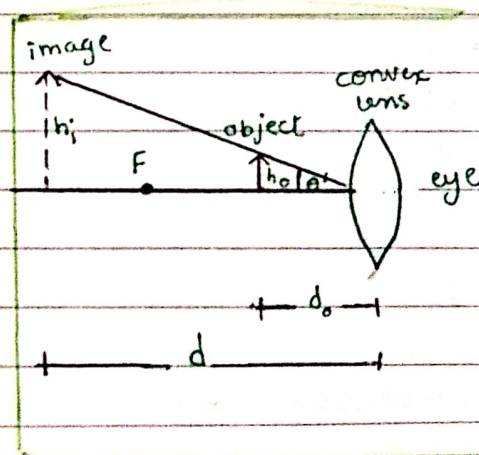 image
convex
lens
object
hi
F
ho
θ'
eye
do
d